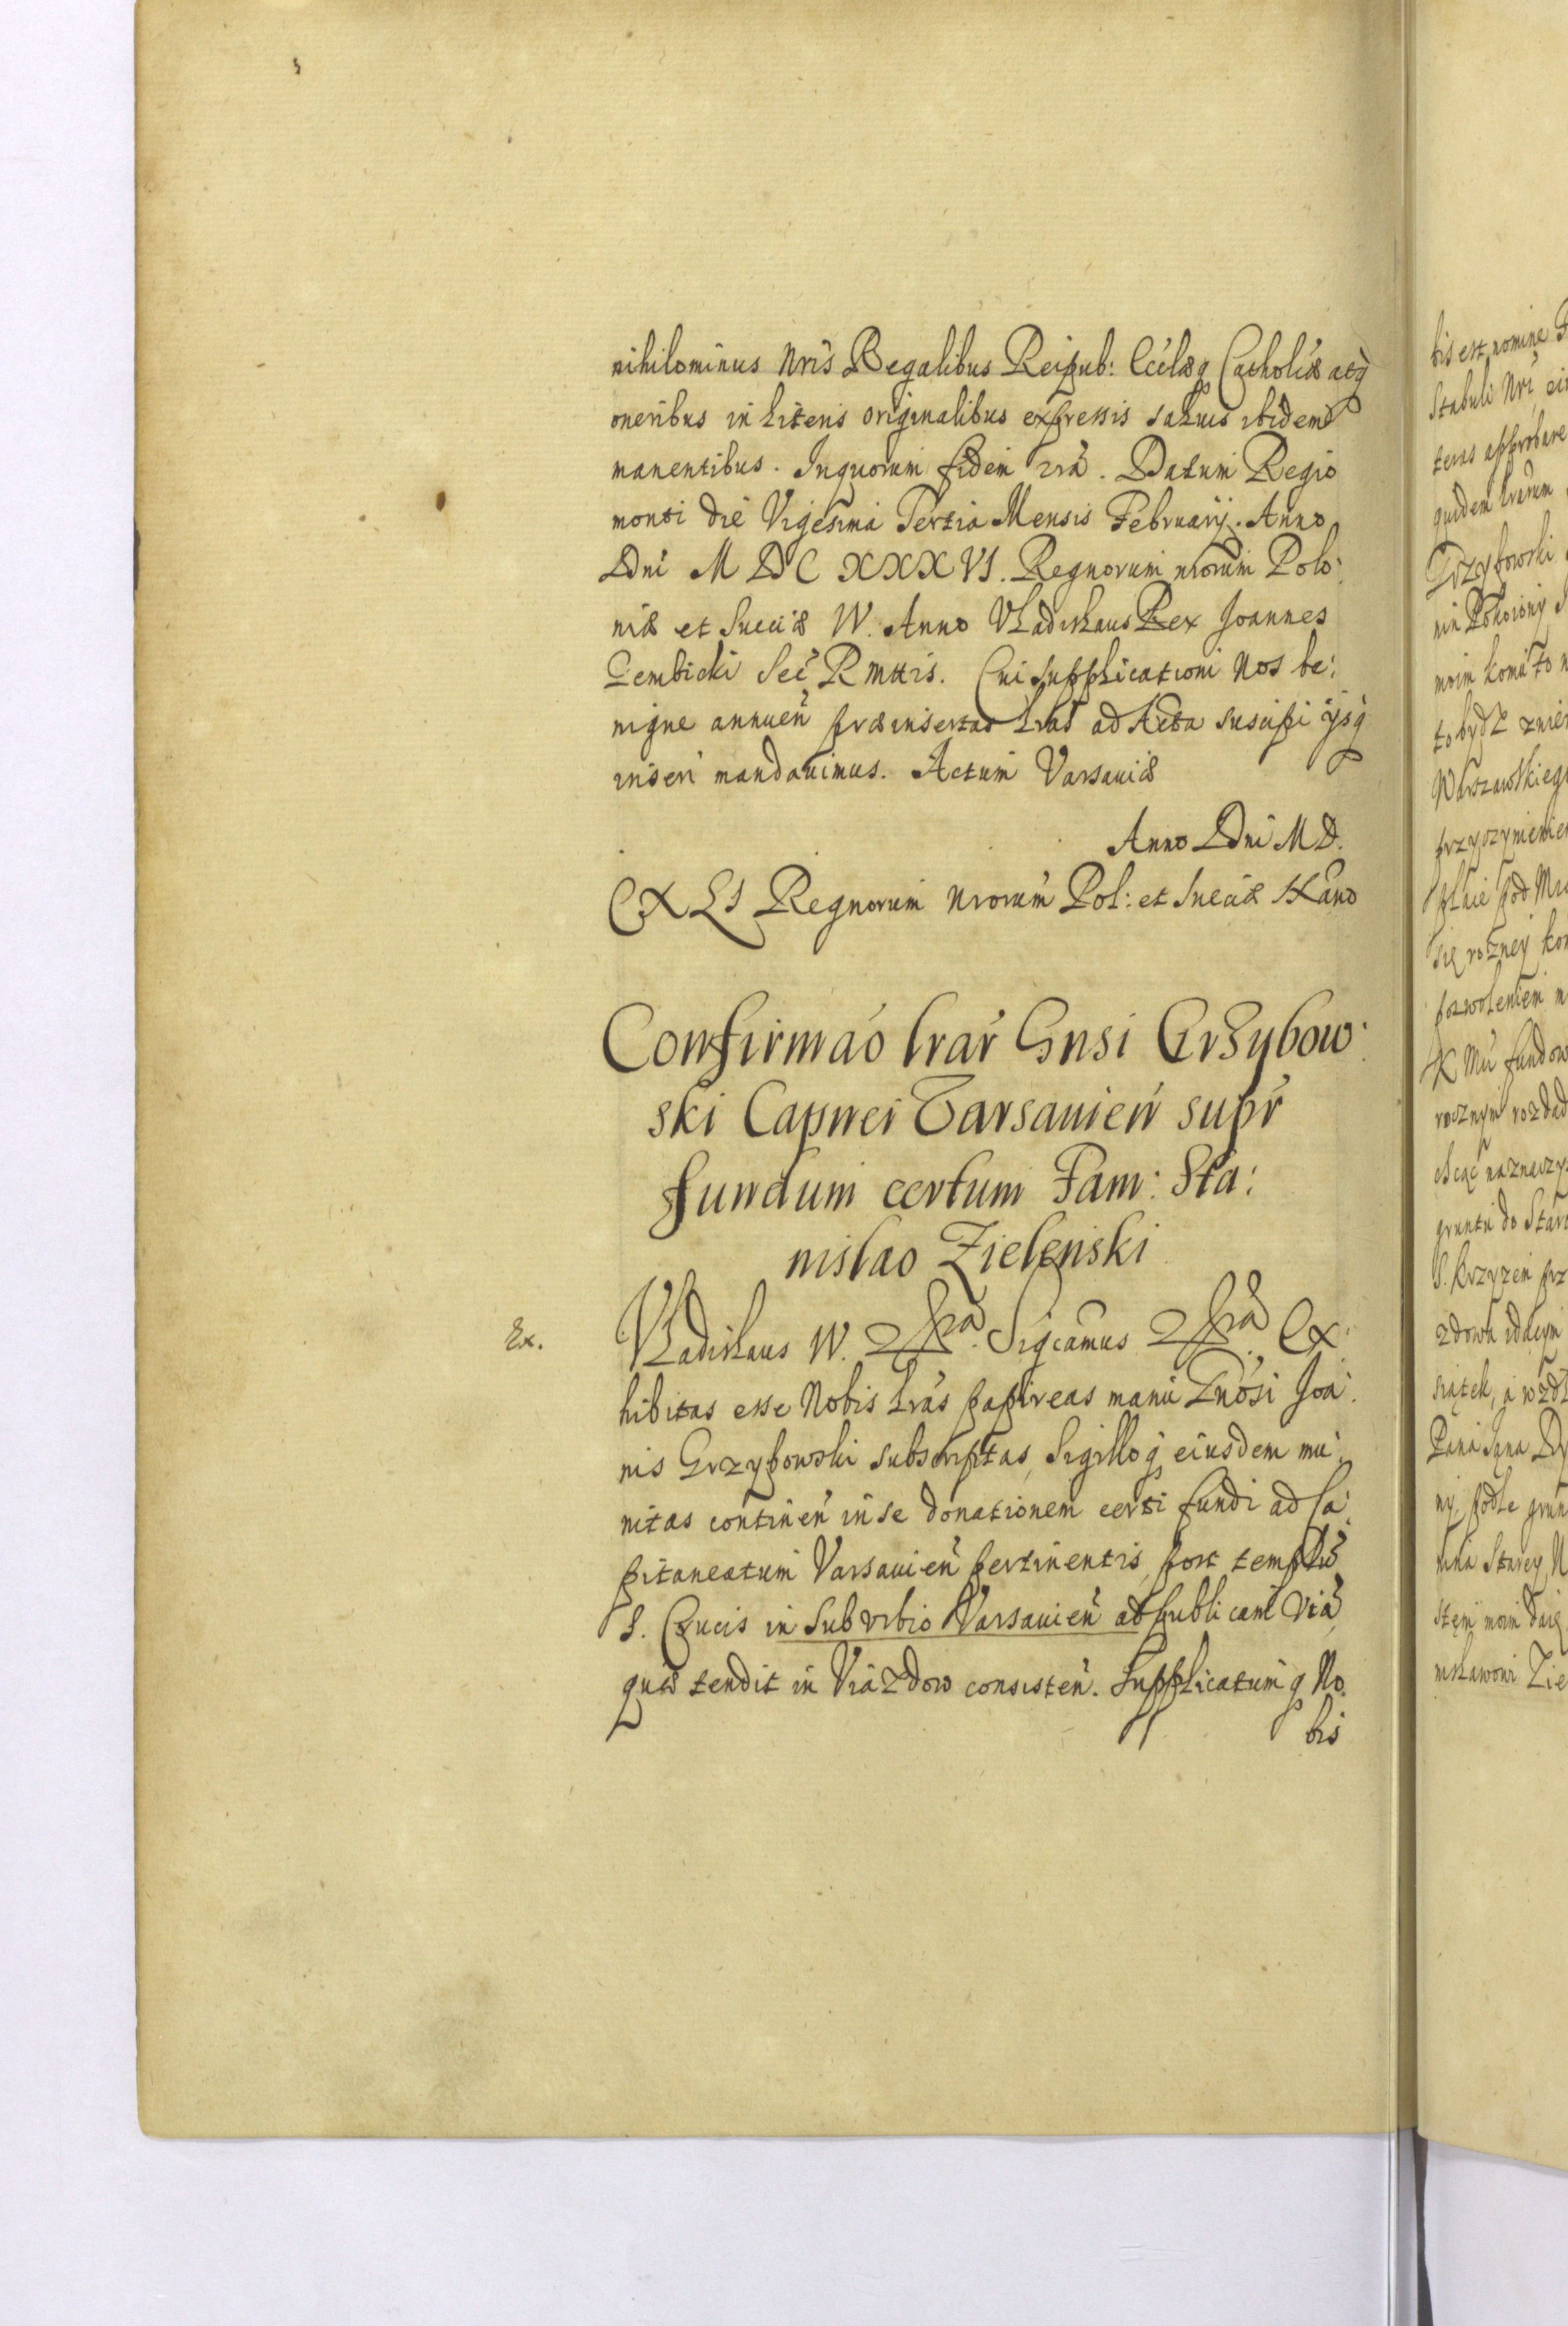 nihilominus Nris Regalibus Reipub: Cclæq Catholicæ atq
oneribus in Literis originalibus expressis saluis ibidem
manentibus. Inquorum fidem
Datum Regio
monti die Vigesima Tertia Mensis Februarij. Anno
Dni M DC XXXVI. Regnorum nrorum Polo:
niæ et Sueciæ IV. Anno Vladislaus Rex Joannes
Gembicki Sec R Mttis. Cui Supplicationi Nos be:
nigne annuen præinsertas Lras ad Acta suscipi ijsq
inseri mandauimus. Actum Varsauiæ
Anno Dni M D.
C XLI Regnorum Nrorum Pol: et Sueciæ IX ano
Confirmao lrar Gnsi Grzybow:
ski Capnei Varsauien supr
fundum certum Fam: Sta:
nislao Zielenski
Ex.
Vladislaus IV. Sigcamus Ex:
hibitas esse Nobis Lras papireas manu Gnosi Joa:
nis Grzybowski subscriptas, Sigilloq eiusdem mu:
nitas continen in se donationem certi fundi ad Ca:
pitaneatum Varsauien pertinentis, post templu
S. Crucis in Suburbio Varsauien ad publicam Via,
quæ tendit in Viazdow consisten. Supplicatumq No:
bis
bis est nomine
Stabuli Nri,
teras approbare
quidem lrarum
Grzybowski
nin Pokoiony
moim komu to
to bydź
Warszawskiego
przyczynienie
pod
się rozney
pozwoleniem
K Mci
rocznym
chcąc naznaczy
gruntu do Staro
S. Krzyzem prz
zdowu idącym
siątek, a wzdł
Pana Jana
ny, podle grun
Starey
moim daię
nislawowi Zie